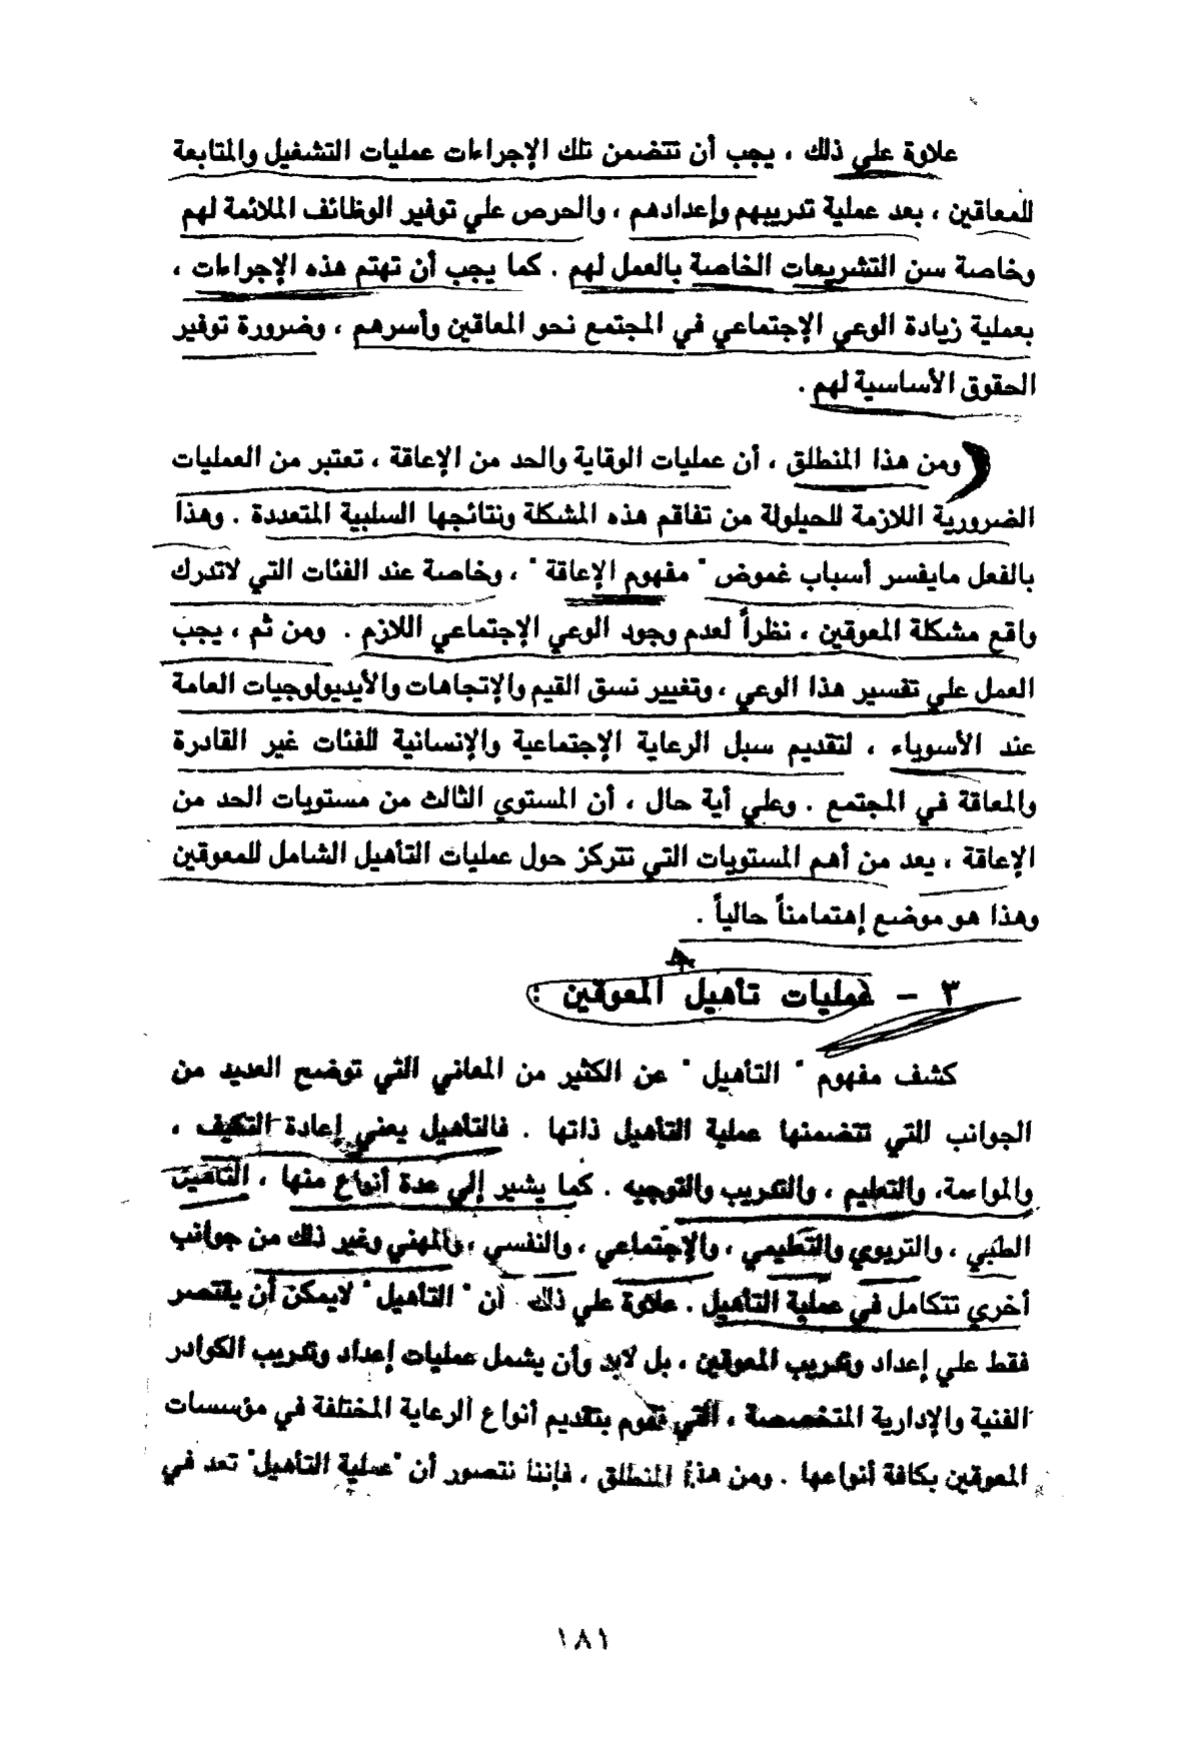 علاوة علي ذلك ، يجب أن تتضمن تلك الإجراءات عمليات التشغيل والمتابعة
للمعاقين ، بعد عملية تدريبهم وإعدادهم ، والحرص علي توفير الوظائف الملائمة لهم
وخاصة سن التشريعات الخاصة بالعمل لهم . كما يجب أن تهتم هذه الإجراءات ،
بعملية زيادة الوعي الإجتماعي في المجتمع نحو المعاقين وأسرهم ، وضرورة توفير
الحقوق الأساسية لهم .
ومن هذا المنطلق ، أن عمليات الوقاية والحد من الإعاقة ، تعتبر من العمليات
الضرورية اللازمة للحيلولة من تفاقم هذه المشكلة ونتائجها السلبية المتعددة . وهذا
بالفعل مايفسر أسباب غموض " مفهوم الإعاقة " ، وخاصة عند الفئات التي لاتدرك
واقع مشكلة المعوقين ، نظراً لعدم وجود الوعي الإجتماعي اللازم . ومن ثم ، يجب
العمل علي تفسير هذا الوعي ، وتغيير نسق القيم والإتجاهات والأيديولوجيات العامة
عند الأسوياء ، لتقديم سبل الرعاية الإجتماعية والإنسانية للفئات غير القادرة
والمعاقة في المجتمع . وعلي أية حال ، أن المستوي الثالث من مستويات الحد من
الإعاقة ، يعد من أهم المستويات التي تتركز حول عمليات التأهيل الشامل للمعوقين
وهذا هو موضع إهتمامناً حالياً .
٣ - عمليات تأهيل المعوقين :
كشف مفهوم " التأهيل " عن الكثير من المعاني التي توضح العديد من
الجوانب التي تتضمنها عملية التأهيل ذاتها . فالتأهيل يعني إعادة التكيف ،
والمواءمة، والتعليم ، والتدريب والتوجيه . كما يشير إلي عدة أنواع منها ، التأهيل
الطبي ، والتربوي والتعليمي ، والإجتماعي ، والنفسي ، والمهني وغير ذلك من جوانب
أخري تتكامل في عملية التأهيل . علاوة علي ذلك أن " التأهيل " لايمكن أن يقتصر
فقط علي إعداد وتدريب المعوقين ، بل لابد وأن يشمل عمليات إعداد وتدريب الكوادر
الفنية والإدارية المتخصصة ، التي تقوم بتقديم أنواع الرعاية المختلفة في مؤسسات
المعوقين بكافة أنواعها . ومن هذا المنطلق ، فإننا نتصور أن "عملية التأهيل" تعد في
١٨١